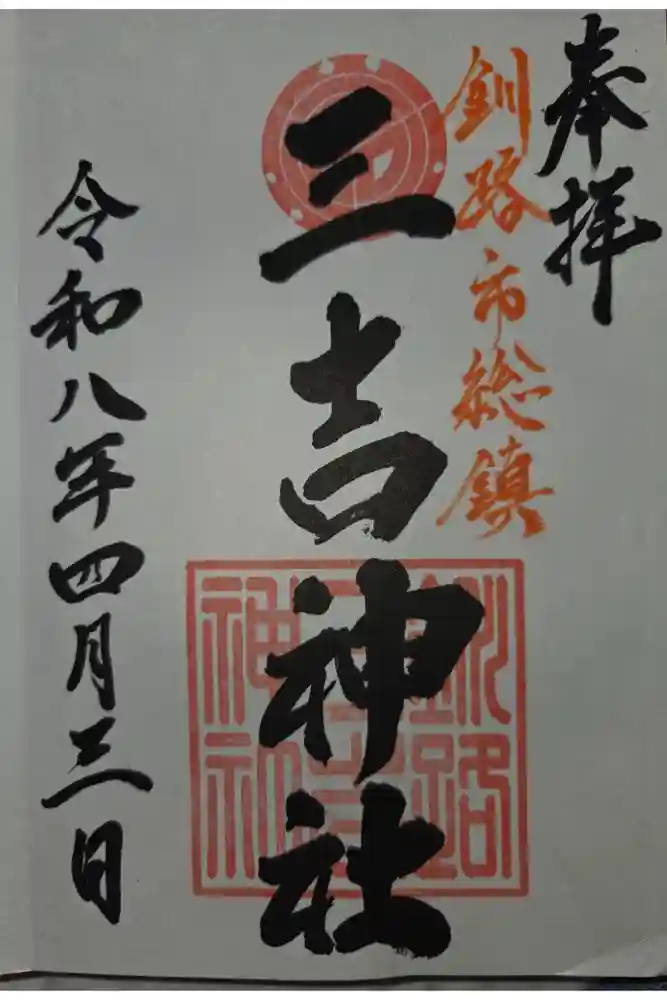 奉拝
釧路市総鎮
三吉神社
釧路
三吉
神社
令和八年四月三日